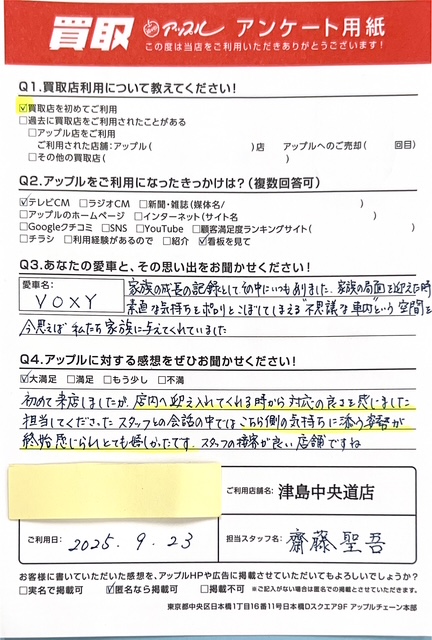 買取 アップル アンケート用紙
この度は当店をご利用いただきありがとうございます!
Q1.買取店利用について教えてください!
☑買取店を初めてご利用
□過去に買取店をご利用されたことがある
□アップル店をご利用
ご利用された店舗:アップル( )店 アップルへのご売却( 回目)
□その他の買取店( )
Q2.アップルをご利用になったきっかけは?(複数回答可)
☑テレビCM □ラジオCM □新聞・雑誌(媒体名/ )
□アップルのホームページ □インターネット(サイト名 )
□Googleクチコミ □SNS □YouTube □顧客満足度ランキングサイト( )
□チラシ □利用経験があるので □紹介 ☑看板を見て
Q3.あなたの愛車と、その思い出をお聞かせください!
愛車名: VOXY
家族の成長の記録として自中にいつもありました。家族の局面を迎えた時
素直な気持ちをポロリとこぼしてしまえる"不思議な車内"という空間を
今思えば私たち家族に与えてくれていました
Q4.アップルに対する感想をぜひお聞かせください!
☑大満足 □満足 □もう少し □不満
初めて来店しましたが、店内へ迎え入れてくれる時から対応の良さを感じました
担当してくださったスタッフとの会話の中ではこちら側の気持ちに添う姿勢が
終始感じられとても嬉しかったです。スタッフの接客が良い店舗ですね
ご利用店舗名: 津島中央道店
ご利用日: 2025. 9. 23 担当スタッフ名: 齋藤聖吾
お客様に書いていただいた感想を、アップルHPや広告に掲載させていただいてもよろしいでしょうか?
□実名で掲載可 ☑匿名なら掲載可 □掲載不可 ※ご記入がない場合は匿名での掲載とさせていただきます。
東京都中央区日本橋1丁目16番11号日本橋Dスクエア9F アップルチェーン本部